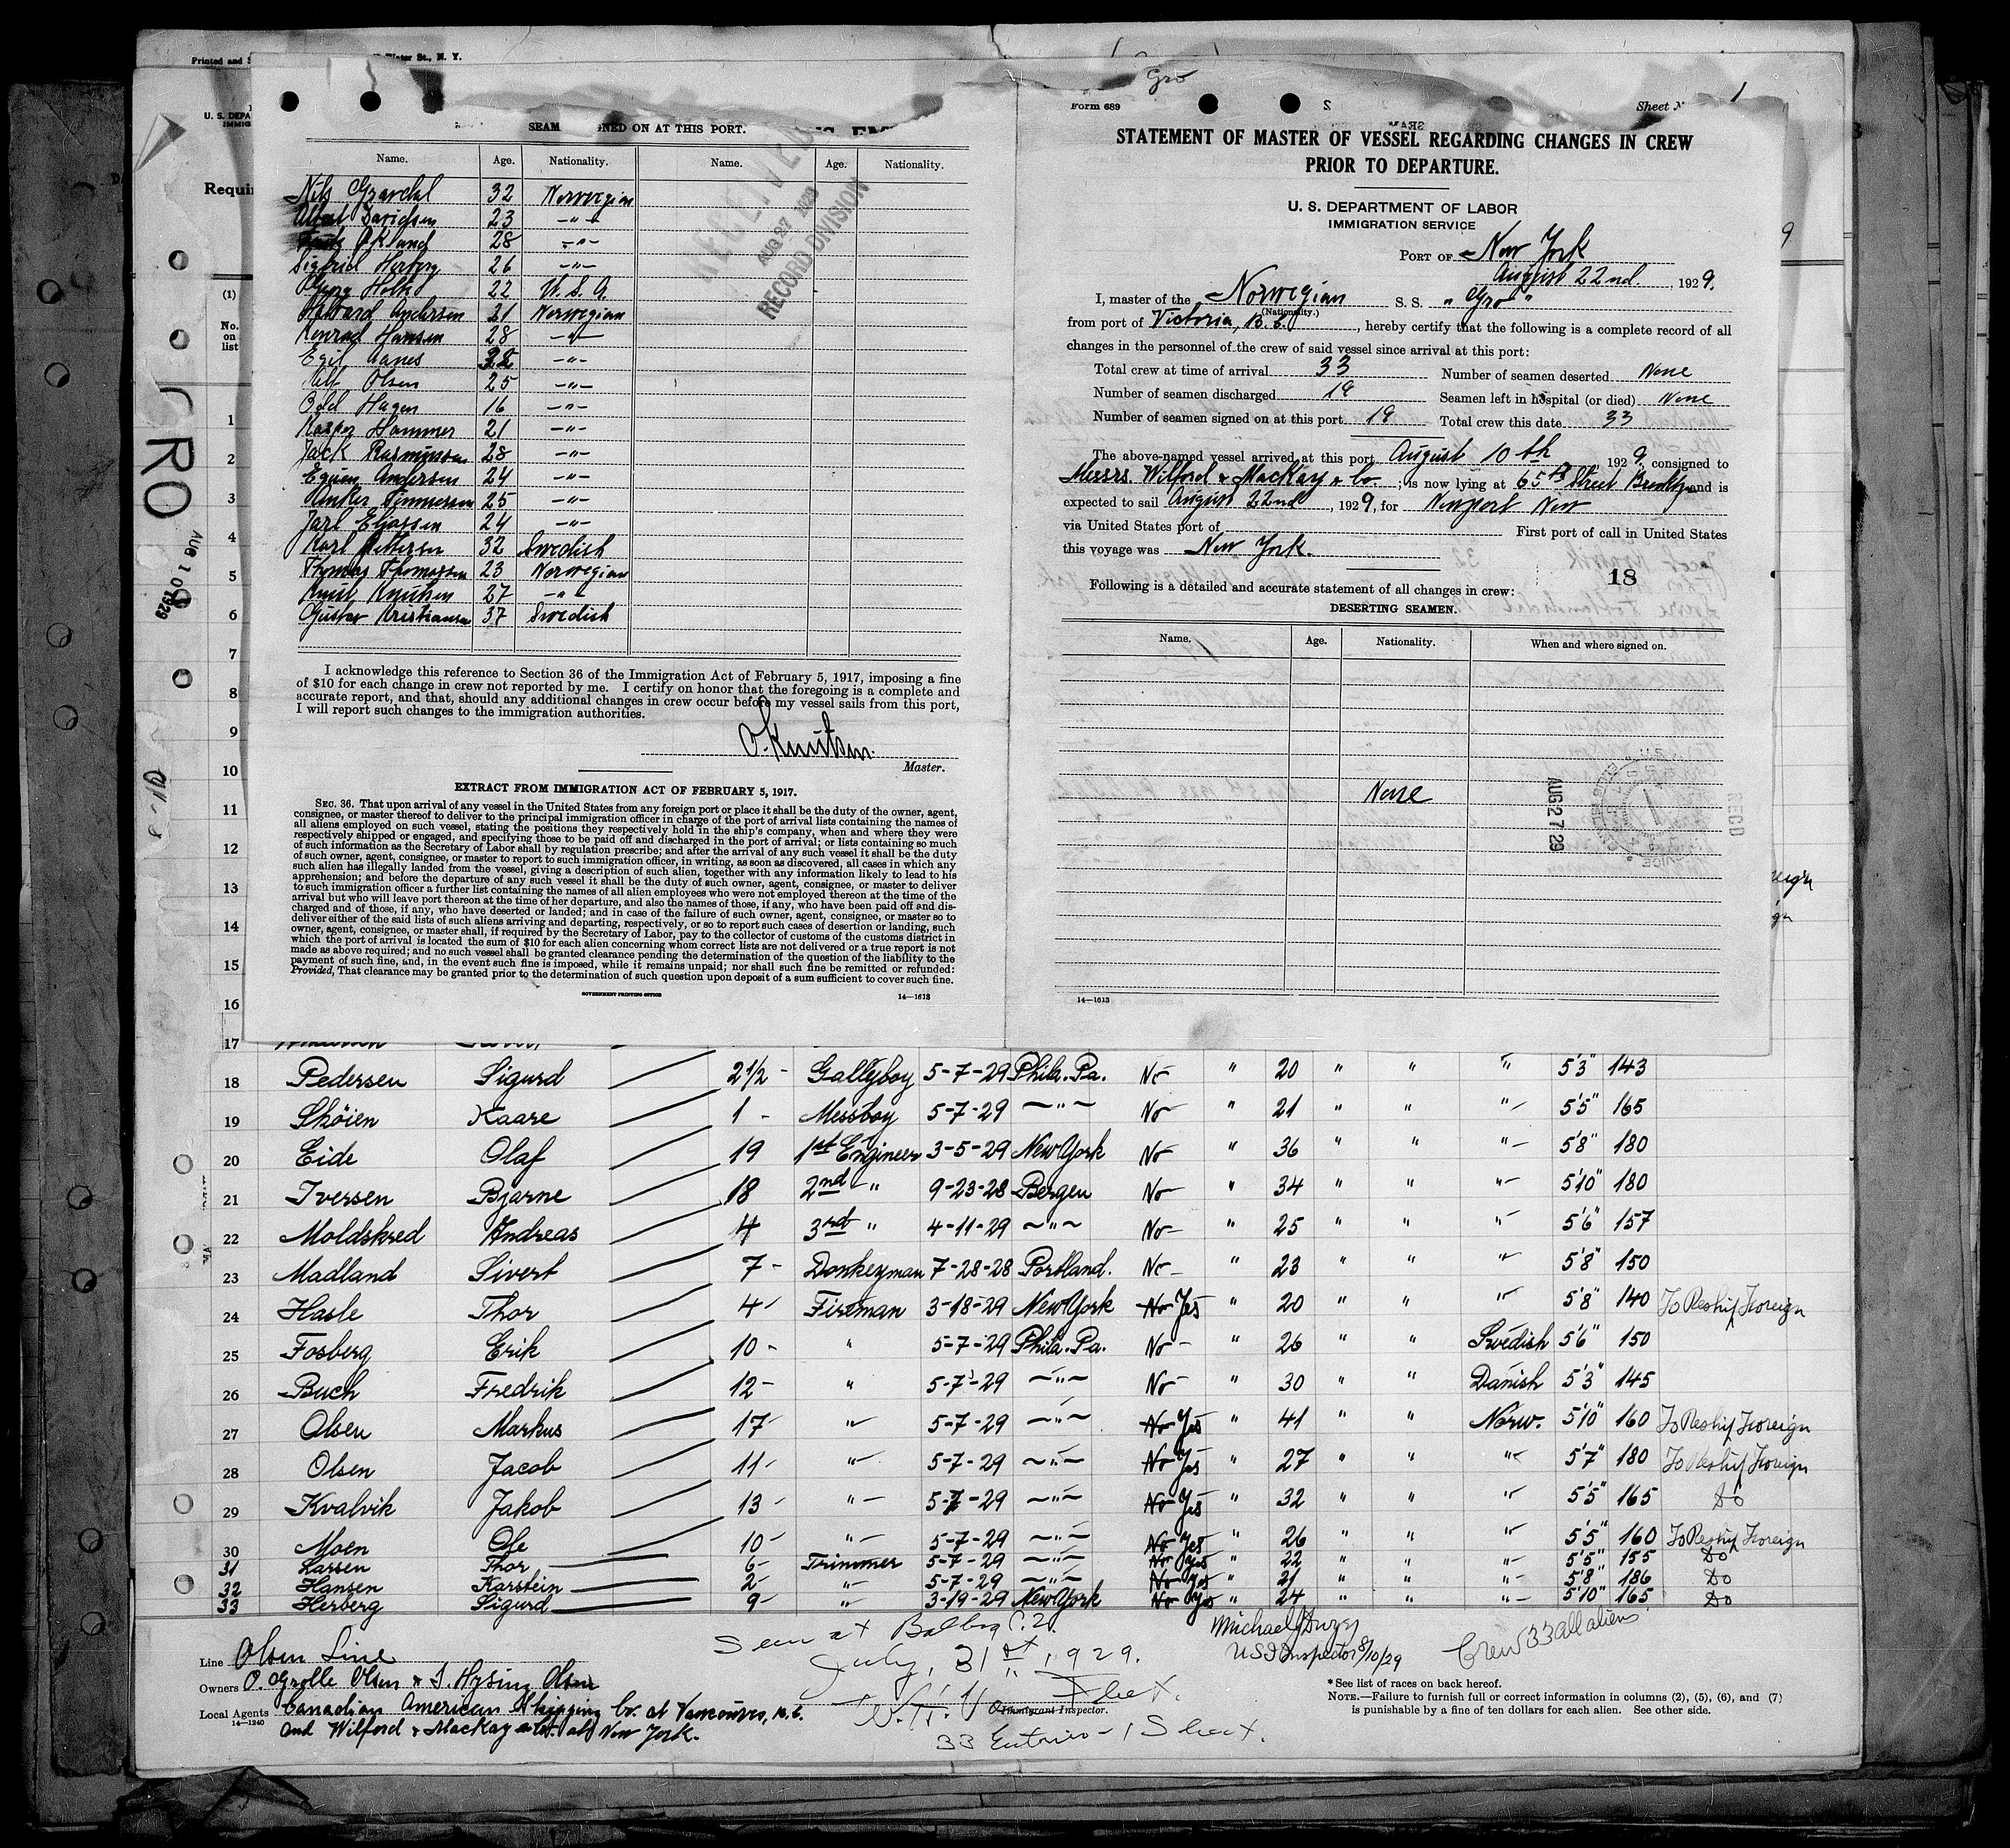 Printed and S
Water St., N. Y.
U. S. DEPA
IMMIG
Requir
(1)
No.
on
list
GRO
AUG 10 1929
SEAM NED ON AT THIS PORT.
Name. Age. Nationality. Name. Age. Nationality.
Nils 32 Norwegian
23 -"-
Økland 28 -"-
Sigfried Herberg 26 -"-
22 U.S.A.
Andersen 21 Norwegian
Konrad Hansen 28 -"-
Egil 28 -"-
Olsen 25 -"-
Odd Hagen 16 -"-
Kasper Hammer 21 -"-
Jack Rasmussen 28 -"-
Andersen 24 -"-
25 -"-
Jarl Eliassen 24 -"-
Karl Pettersen 32 Swedish
Thomas Thomassen 23 Norwegian
Knut Knutsen 27 -"-
Gustav Kristiansen 37 Swedish
RECEIVED
AUG 27 1929
RECORD DIVISION
I acknowledge this reference to Section 36 of the Immigration Act of February 5, 1917, imposing a fine
of $10 for each change in crew not reported by me. I certify on honor that the foregoing is a complete and
accurate report, and that, should any additional changes in crew occur before my vessel sails from this port,
I will report such changes to the immigration authorities.
O. Knutsen.
Master.
EXTRACT FROM IMMIGRATION ACT OF FEBRUARY 5, 1917.
SEC. 36. That upon arrival of any vessel in the United States from any foreign port or place it shall be the duty of the owner, agent,
consignee, or master thereof to deliver to the principal immigration officer in charge of the port of arrival lists containing the names of
all aliens employed on such vessel, stating the positions they respectively hold in the ship's company, when and where they were
respectively shipped or engaged, and specifying those to be paid off and discharged in the port of arrival; or lists containing so much
of such information as the Secretary of Labor shall by regulation prescribe; and after the arrival of any such vessel it shall be the duty
of such owner, agent, consignee, or master to report to such immigration officer, in writing, as soon as discovered, all cases in which any
such alien has illegally landed from the vessel, giving a description of such alien, together with any information likely to lead to his
apprehension; and before the departure of any such vessel it shall be the duty of such owner, agent, consignee, or master to deliver
to such immigration officer a further list containing the names of all alien employees who were not employed thereon at the time of the
arrival but who will leave port thereon at the time of her departure, and also the names of those, if any, who have been paid off and dis-
charged and of those, if any, who have deserted or landed; and in case of the failure of such owner, agent, consignee, or master so to
deliver either of the said lists of such aliens arriving and departing, respectively, or so to report such cases of desertion or landing, such
owner, agent, consignee, or master shall, if required by the Secretary of Labor, pay to the collector of customs of the customs district in
which the port of arrival is located the sum of $10 for each alien concerning whom correct lists are not delivered or a true report is not
made as above required; and no such vessel shall be granted clearance pending the determination of the question of the liability to the
payment of such fine, and, in the event such fine is imposed, while it remains unpaid; nor shall such fine be remitted or refunded:
Provided, That clearance may be granted prior to the determination of such question upon deposit of a sum sufficient to cover such fine.
GOVERNMENT PRINTING OFFICE 14—1613
Gro
Form 689 2 Sheet N 1
STATEMENT OF MASTER OF VESSEL REGARDING CHANGES IN CREW
PRIOR TO DEPARTURE.
U. S. DEPARTMENT OF LABOR
IMMIGRATION SERVICE
PORT OF New York
August 22nd., 1929.
I, master of the Norwegian S. S. "Gro"
(Nationality.)
from port of Victoria, B.C., hereby certify that the following is a complete record of all
changes in the personnel of the crew of said vessel since arrival at this port:
Total crew at time of arrival 33 Number of seamen deserted None
Number of seamen discharged 19 Seamen left in hospital (or died) None
Number of seamen signed on at this port 19 Total crew this date 33
The above-named vessel arrived at this port August 10th, 1929, consigned to
Messrs. Wilford & MacKay & Co.; is now lying at 65th Street Brooklyn and is
expected to sail August 22nd, 1929, for Newport New
via United States port of First port of call in United States
this voyage was New York.
18
Following is a detailed and accurate statement of all changes in crew:
DESERTING SEAMEN.
Name. Age. Nationality. When and where signed on.
None
AUG 27 29
REC'D
14—1613
1
2
3
4
5
6
7
8
9
10
11
12
13
14
15
16
17
18 Pedersen Sigurd 2 1/2 - Galleyboy 5-7-29 Phila. Pa. No " 20 " " " 5'3" 143
19 Sköien Kaare 1 - Messboy 5-7-29 -"- No " 21 " " " 5'5" 165
20 Eide Olaf 19 1st Engineer 3-5-29 New York No " 36 " " 5'8" 180
21 Iversen Bjarne 18 2nd " 9-23-28 Bergen No " 34 " " " 5'10" 180
22 Moldskred Andreas 4 3rd " 4-11-29 -"- No " 25 " " " 5'6" 157
23 Madland Sivert 7 - Donkeyman 7-28-28 Portland. No " 23 " " " 5'8" 150
24 Hasle Thor 4 - Fireman 3-18-29 New York No Yes " 20 " " " 5'8" 140 To Reship Foreign
25 Fosberg Erik 10 - " 5-7-29 Phila. Pa. No " 26 " " Swedish 5'6" 150
26 Buch Fredrik 12 - " 5-7-29 -"- No " 30 " " Danish 5'3" 145
27 Olsen Markus 17 - " 5-7-29 -"- No Yes " 41 " " Norw. 5'10" 160 To Reship Foreign
28 Olsen Jacob 11 - " 5-7-29 -"- No Yes " 27 " " " 5'7" 180 To Reship Foreign
29 Kvalvik Jakob 13 - " 5-7-29 -"- No Yes " 32 " " " 5'5" 165 Do
30 Moen Ole 10 - " 5-7-29 -"- No Yes " 26 " " " 5'5" 160 To Reship Foreign
31 Larsen Thor 6 - Trimmer 5-7-29 -"- No Yes " 22 " " " 5'5" 155 Do
32 Hansen Karstein 2 - " 5-7-29 -"- No Yes " 21 " " " 5'8" 186 Do
33 Herberg Sigurd 9 - " 3-19-29 New York No Yes " 24 " " " 5'10" 165 Do
Seen at Balboa C.Z.
July, 31st, 1929.
Michael
USI Inspector 8/10/29
Crew 33 all aliens
Line Olsen Line
Owners O. Grolle Olsen & I. Hysing Olsen
Local Agents Canadian American Shipping Co. at Vancouver, B.C.
14—1240
and Wilford & MacKay at New York.
Immigrant Inspector.
33 Entries - 1 Sheet.
* See list of races on back hereof.
NOTE.—Failure to furnish full or correct information in columns (2), (5), (6), and (7)
is punishable by a fine of ten dollars for each alien. See other side.